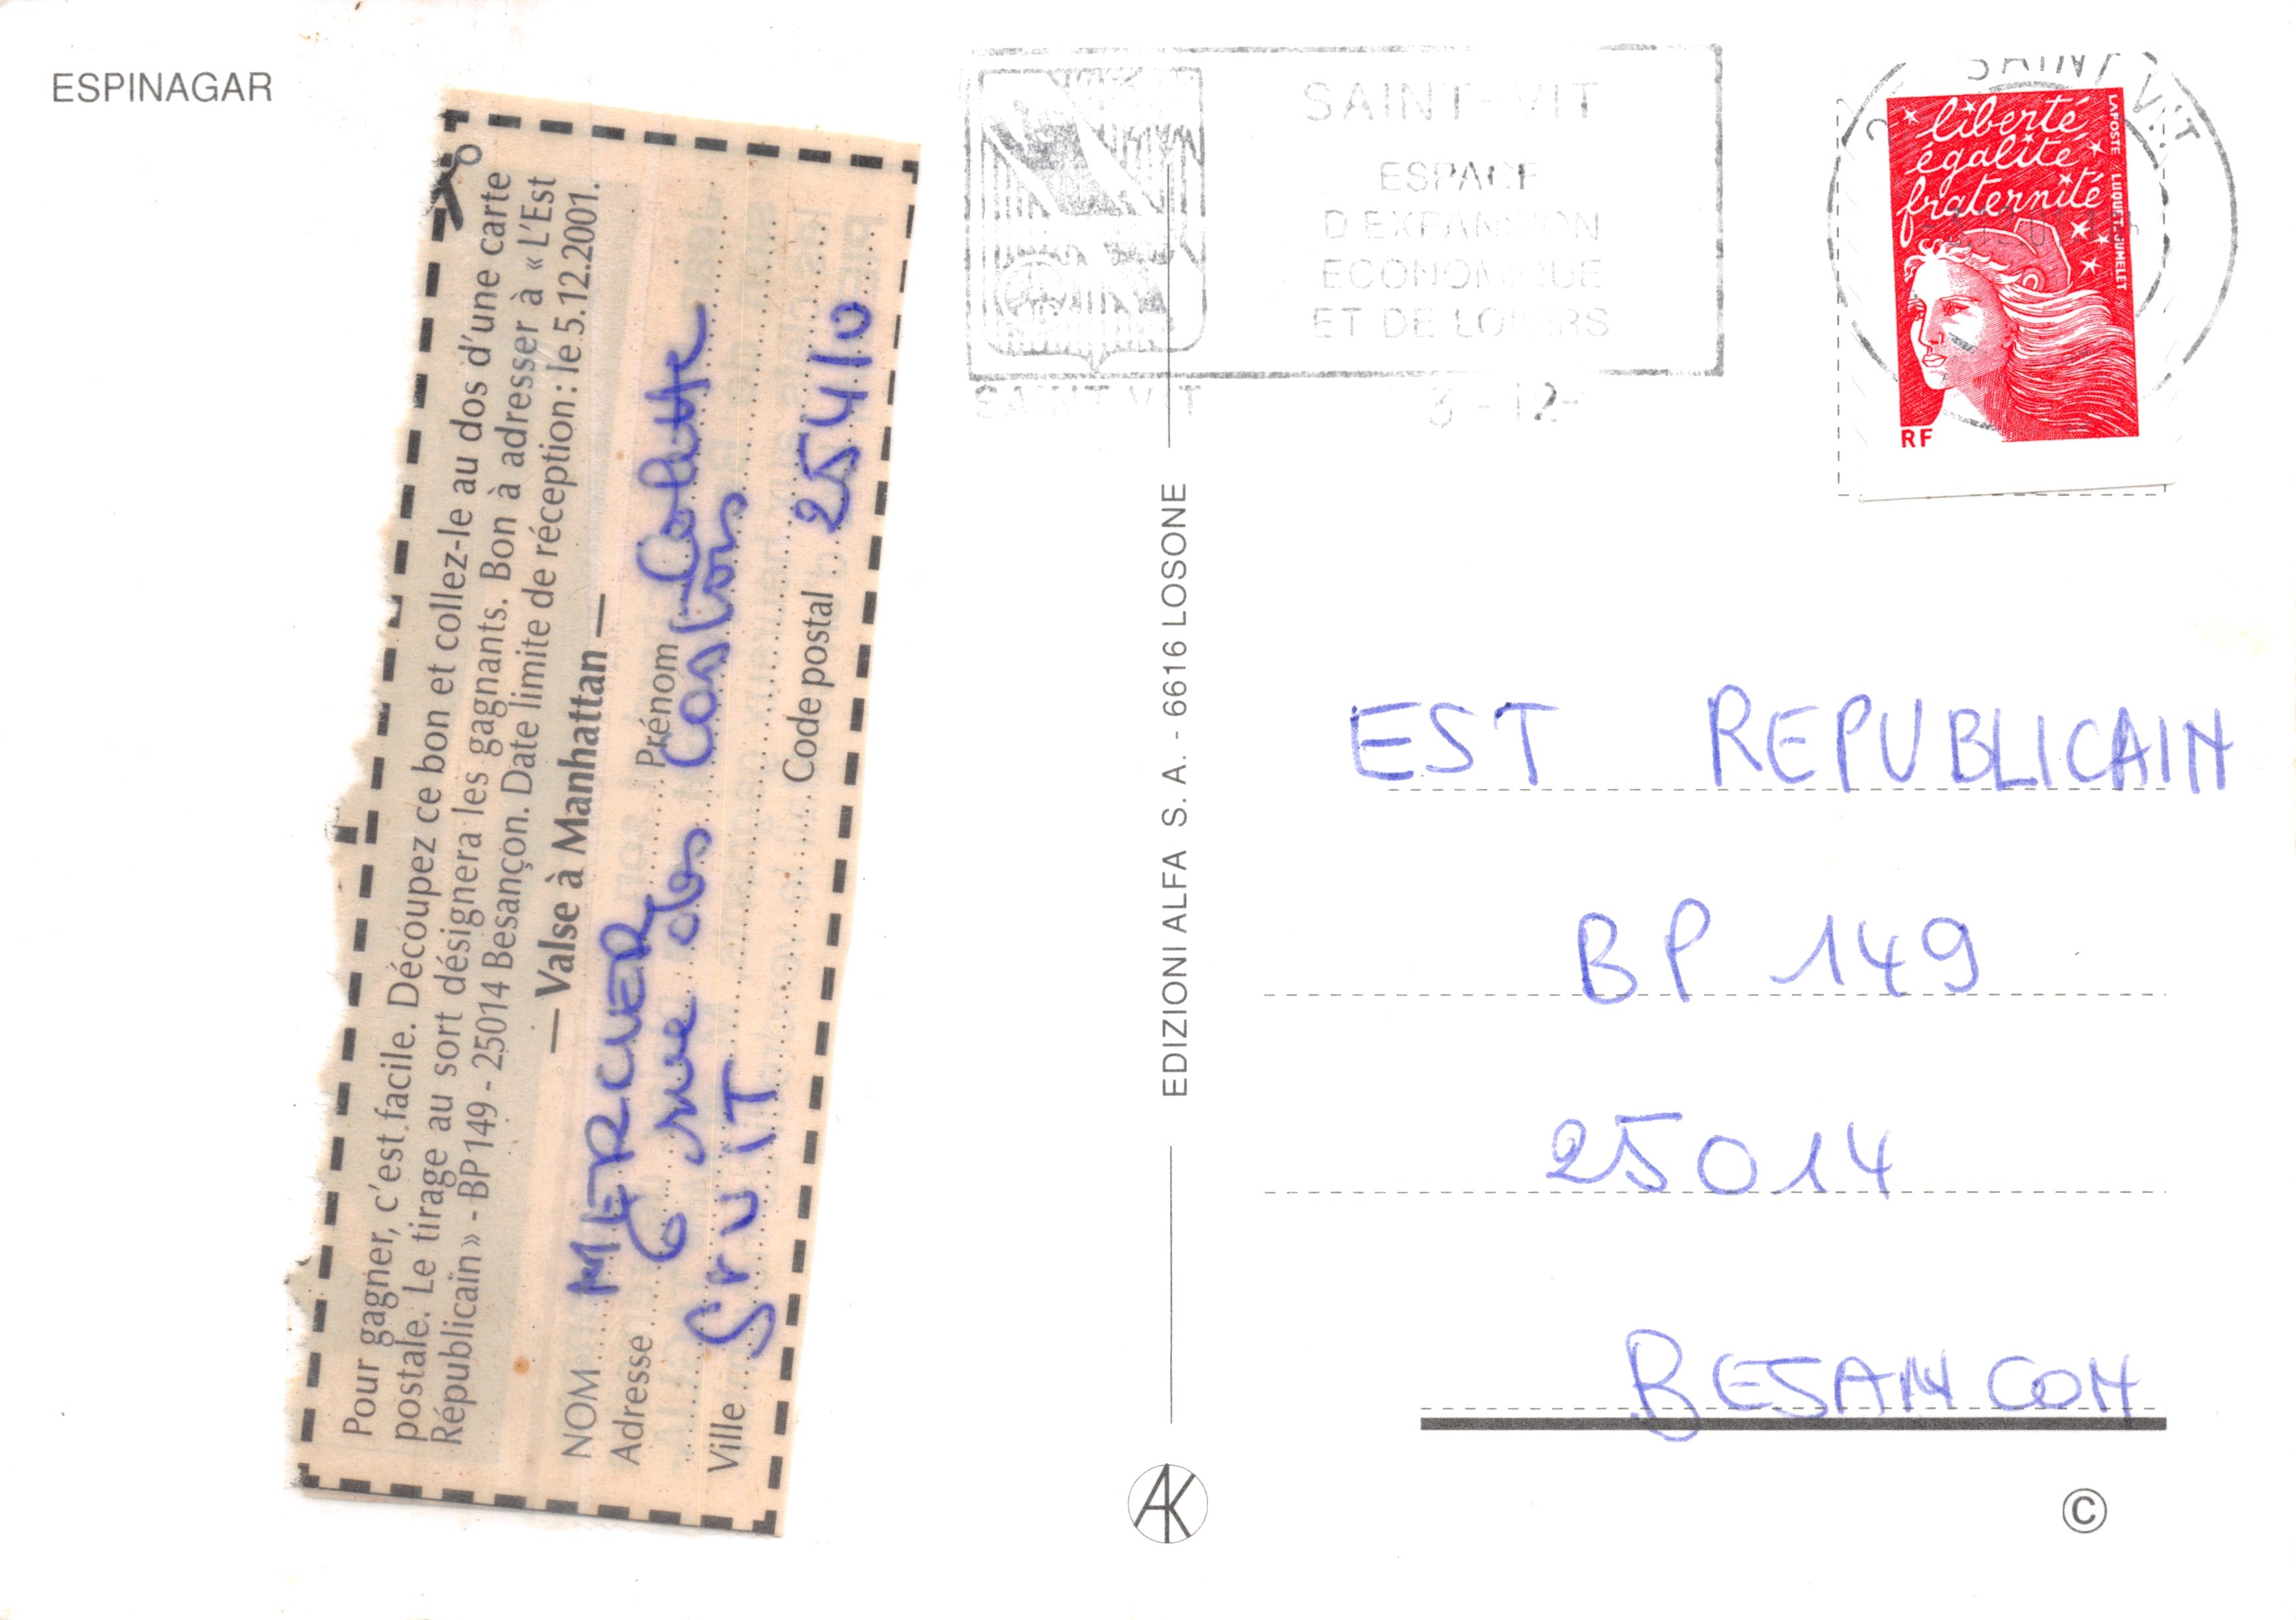 ESPINAGAR
Pour gagner, c'est facile. Découpez ce bon et collez-le au dos d'une carte
postale. Le tirage au sort désignera les gagnants. Bon à adresser à « L'Est
Républicain » - BP 149 - 25014 Besançon. Date limite de réception : le 5.12.2001.
— Valse à Manhattan —
NOM MERCIER Prénom Colette
Adresse 6 rue des Castors
Ville St VIT Code postal 25410
SAINT-VIT
ESPACE
D'EXPANSION
ECONOMIQUE
ET DE LOISIRS
SAINT VIT 3-12-
SAINT VIT
liberté
égalité
fraternité
LA POSTE LUQUET-JUMELET
RF
EDIZIONI ALFA S. A. - 6616 LOSONE
AK
EST REPUBLICAIN
BP 149
25014
BESANCON
©